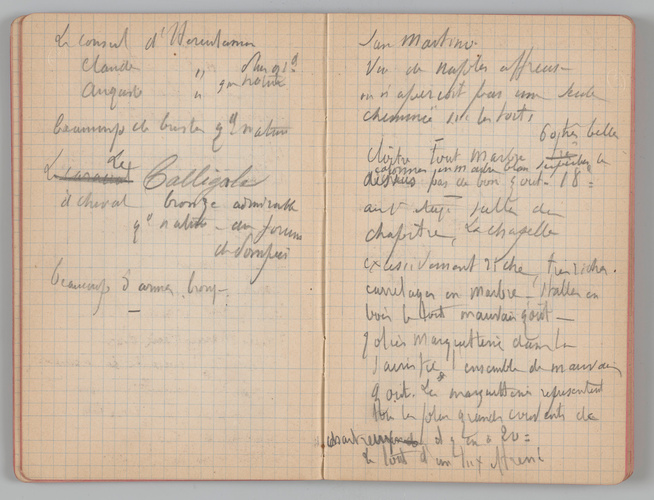 Le consul d'Herculanum
Claude " plus gd
Auguste " gr nature
beaucoup de bustes gr nature
Le Les Calligola
à cheval bronze admirable
gr nature du forum
de Pompei
beaucoup d'armes. bronz.
San Martino.
Vue de naples affreuse
on n'aperçoit pas une seule
cheminée sur les toits
très belle
cloître tout marbre
colonnes en marbre blanc superbes
dessus pas de bon gout. 18
salle du
chapitre, La chapelle
excessivement riche, très riche.
carrelages en marbre. Stalles en
bois le tout mauvais goût
jolies marquetterie dans la
sacristie ensemble de mauvais
gout. Les marquetteries representent
les plus grands couvents de
chartreux, il y en a 20
le tout d'un lux effréné